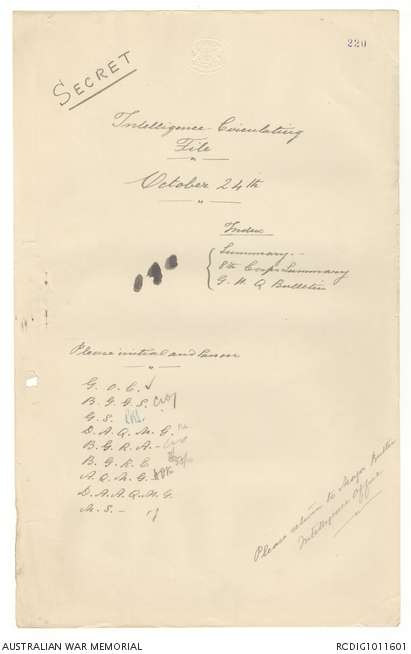 220
SECRET
Intelligence Circulating
File
October 24th
Index
Summary.
8th Corps Summary
G. H. Q Bulletin
Please initial and pass on
G. O. C. ✓
B. G. G. S.
G. S.
D. A. Q. M. G.
B. G. R. A. -
B. G. R. E.
A. Q. M. G.
D. A. A. Q. M. G.
M. S. -
Please return to Major Butler
Intelligence Office
AUSTRALIAN WAR MEMORIAL
RCDIG1011601